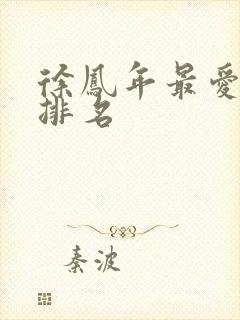 徐鳳年最愛
排名
秦波